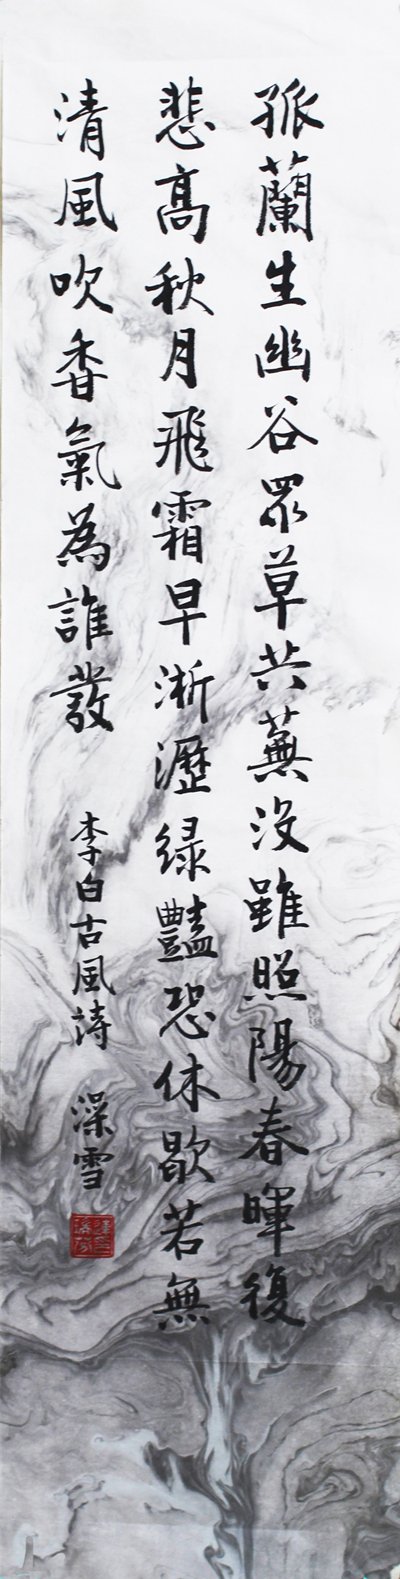 孤蘭生幽谷眾草共蕪沒雖照陽春暉復
悲高秋月飛霜早淅瀝綠豔恐休歇若無
清風吹香氣為誰發
李白古風詩 澡雪